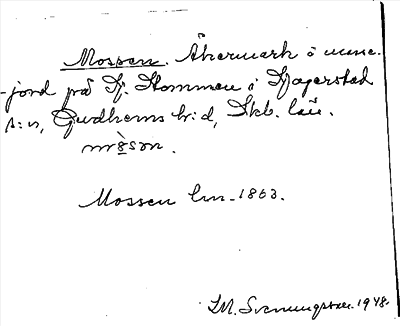 Mossen. Åkermark å mme.
-jord på Kj. Kommen i Fjagerstad
s:n, Gudhems h:d, Skb. län.
mɷ̀sən.
Mossen lm. 1863.
I.M. Svenungsson. 1948.